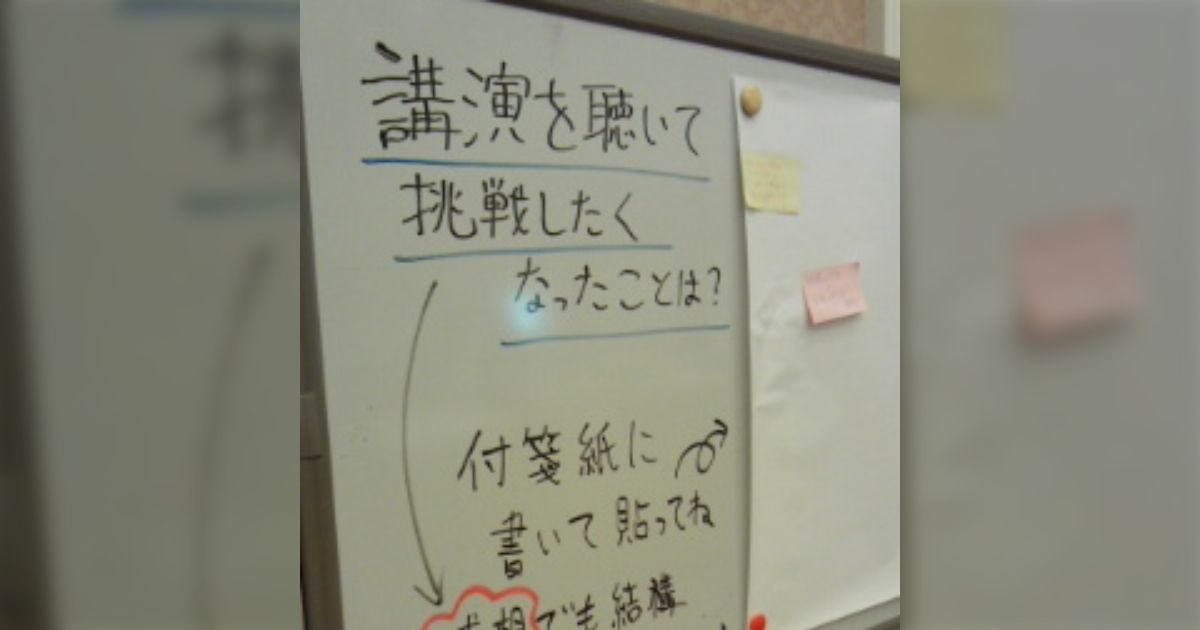 講演を聴いて
挑戦したく
なったことは?
付箋紙に
書いて貼ってね
感想でも結構